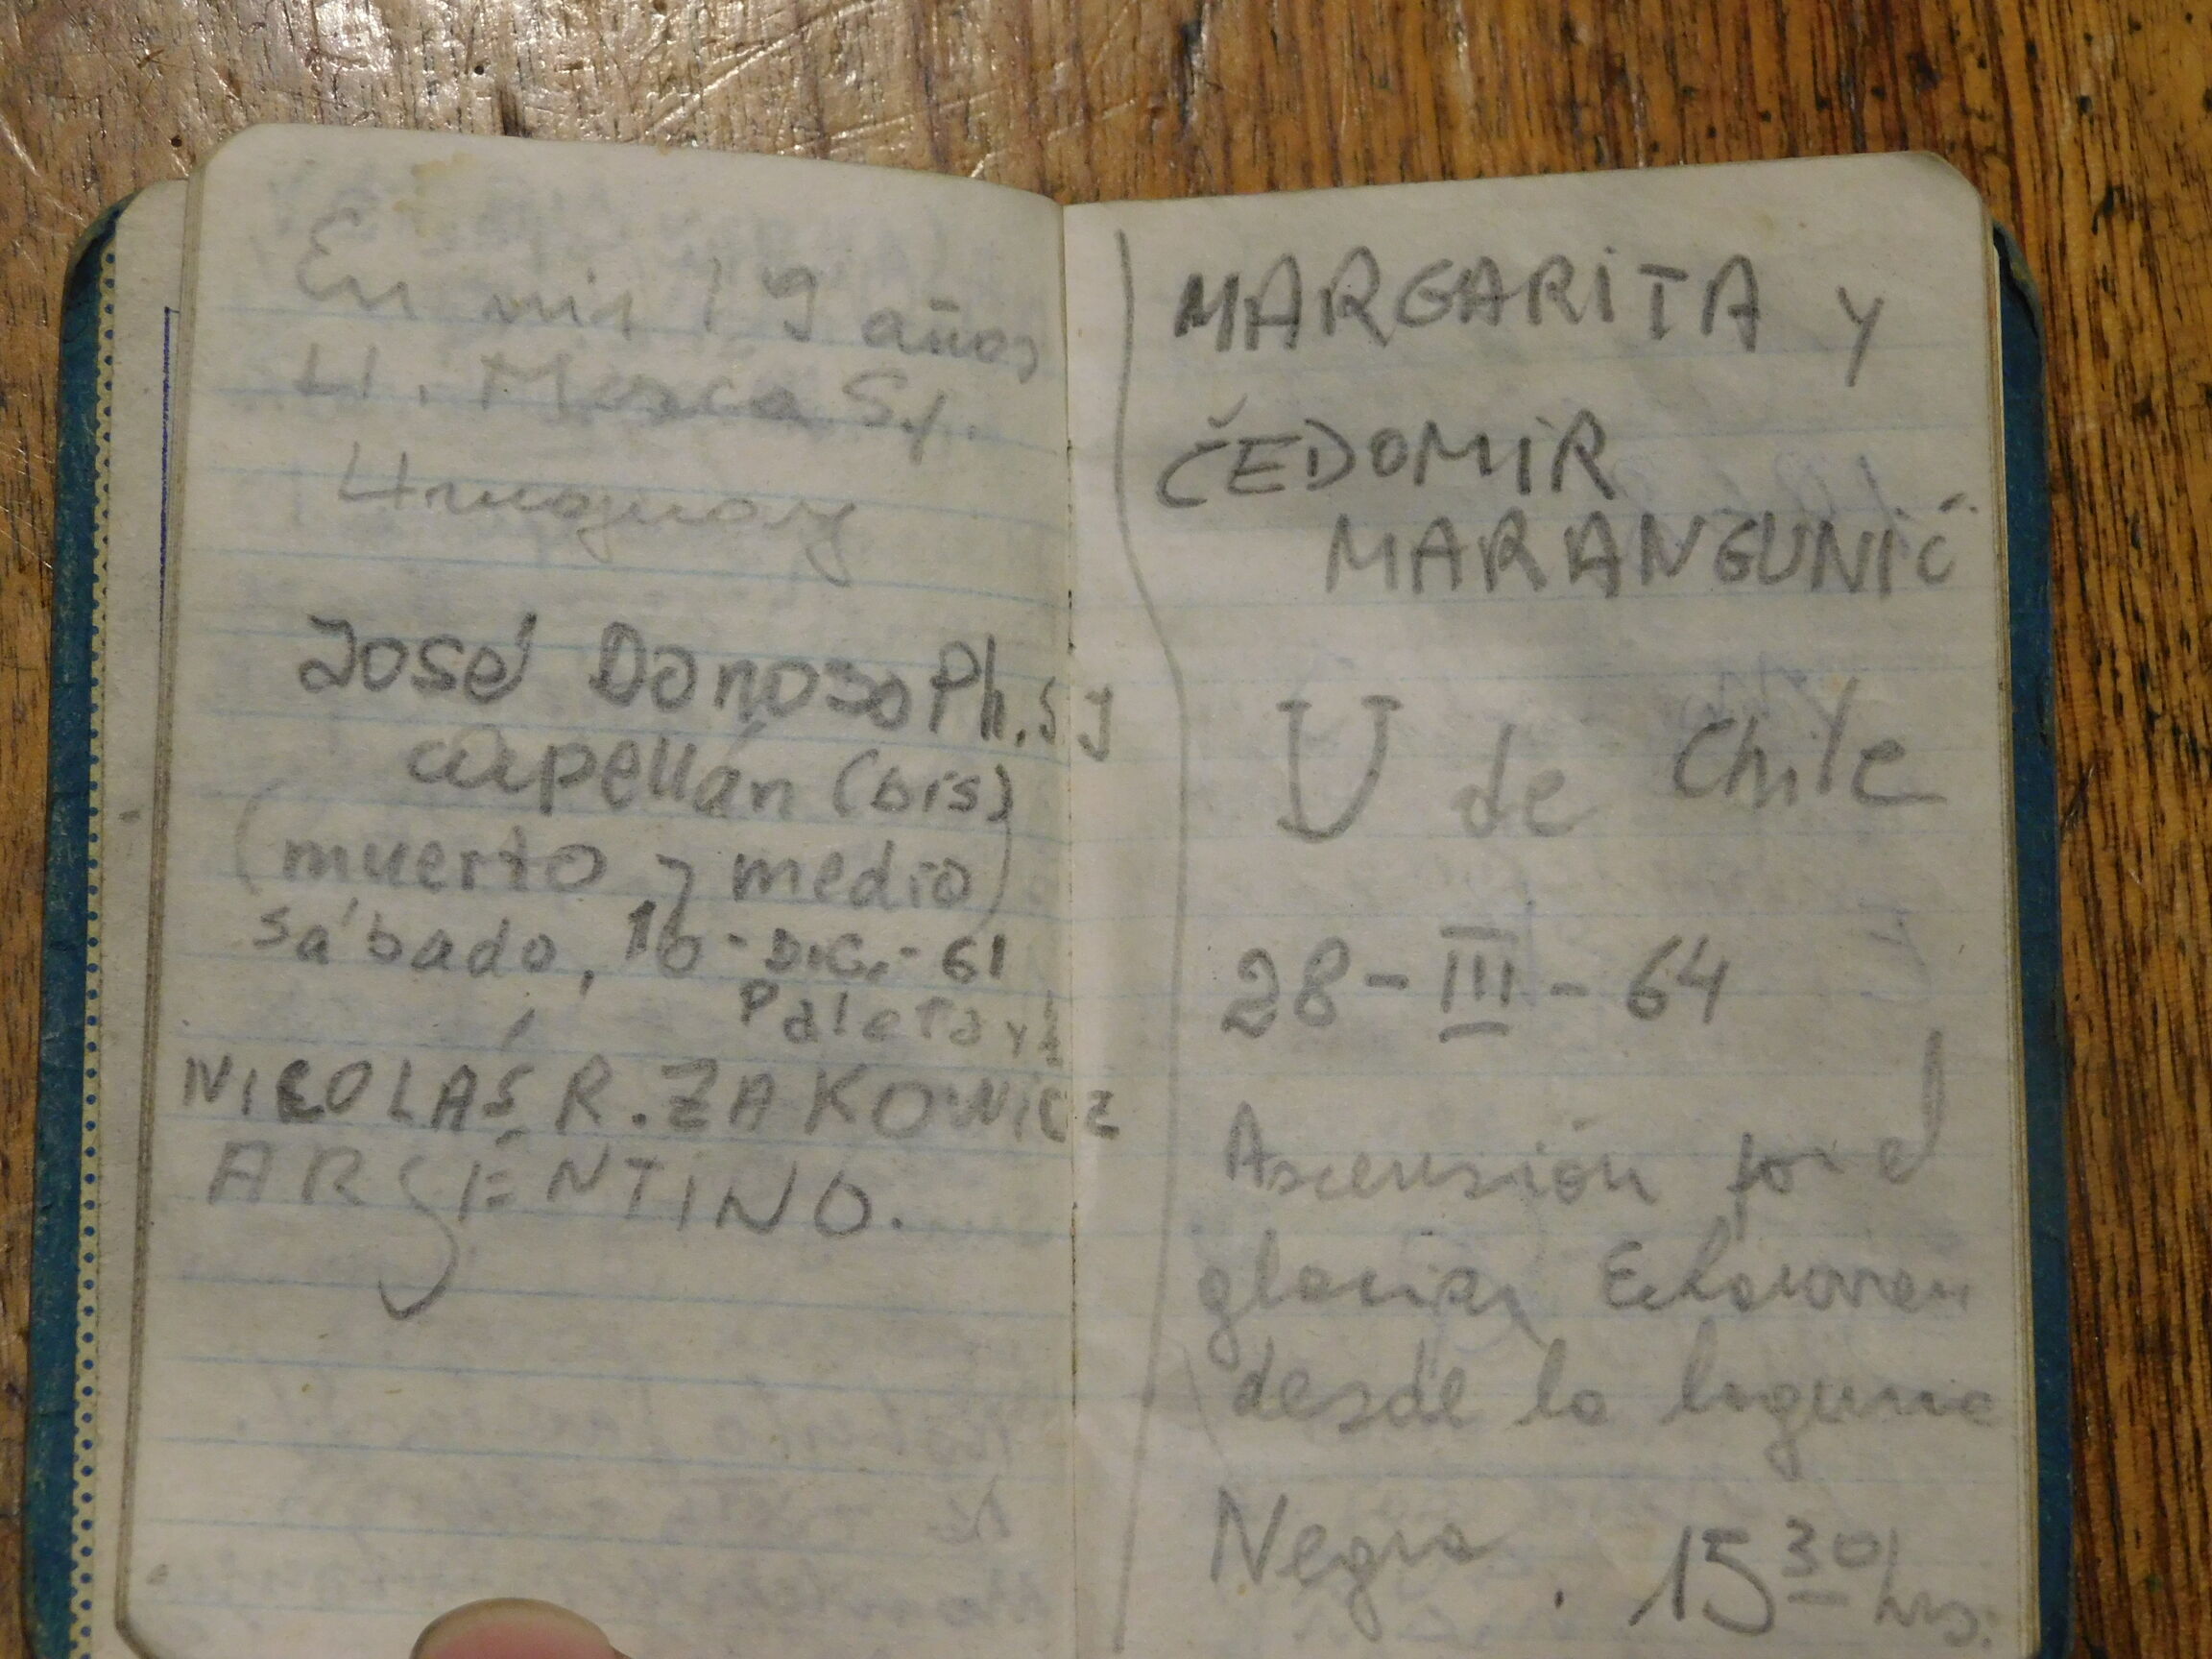 En mis 19 años
H. Mosca S.j.
Uruguay
José Donoso Ph. SJ
capellán (bis)
(muerto y medio)
sábado, 16-DIC.-61
Paleta y ½
NICOLÁS R. ZAKOWICZ
ARgENTINO.
MARGARITA y
ČEDOMIR
MARANGUNIĆ
U de Chile
28-III-64
Ascensión por el
glaciar Echaurren
desde la laguna
Negra. 15 30 hrs.